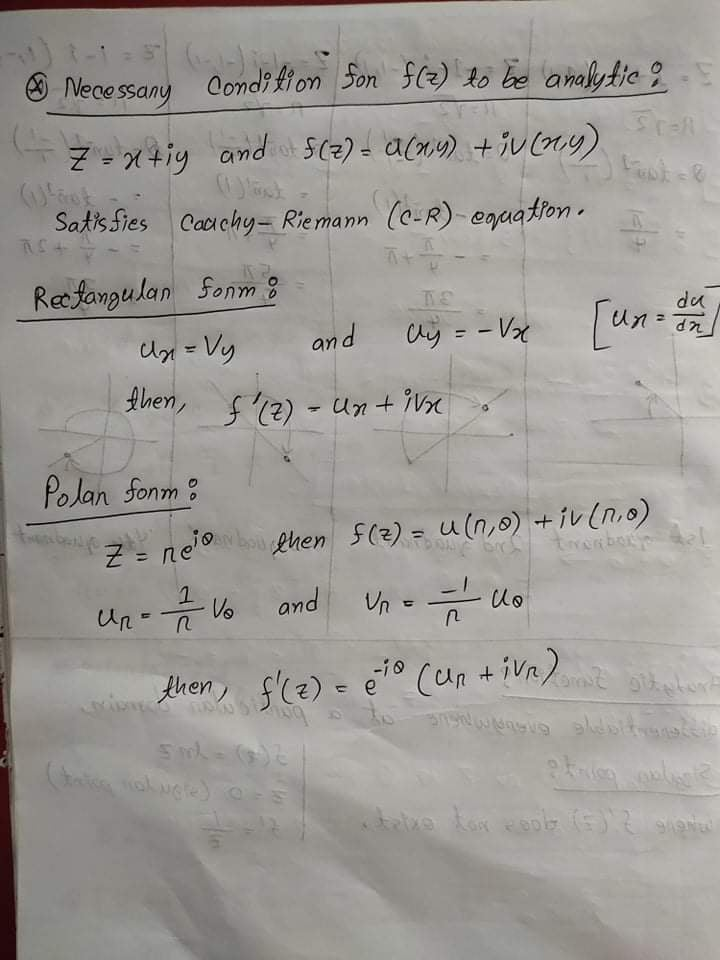 ⊗ Necessary Condition for f(z) to be analytic :
Z = x+iy and f(z) = u(x,y) + iv(x,y)
Satisfies Cauchy-Riemann (C-R) equation.
Rectangular form :
ux = Vy and uy = -Vx [ux = du/dx]
then, f'(z) = ux + iVx
Polar form :
Z = re^iθ then f(z) = u(r,θ) + iv(r,θ)
ur = 1/r Vθ and Vr = -1/r uθ
then, f'(z) = e^-iθ (ur + iVr)